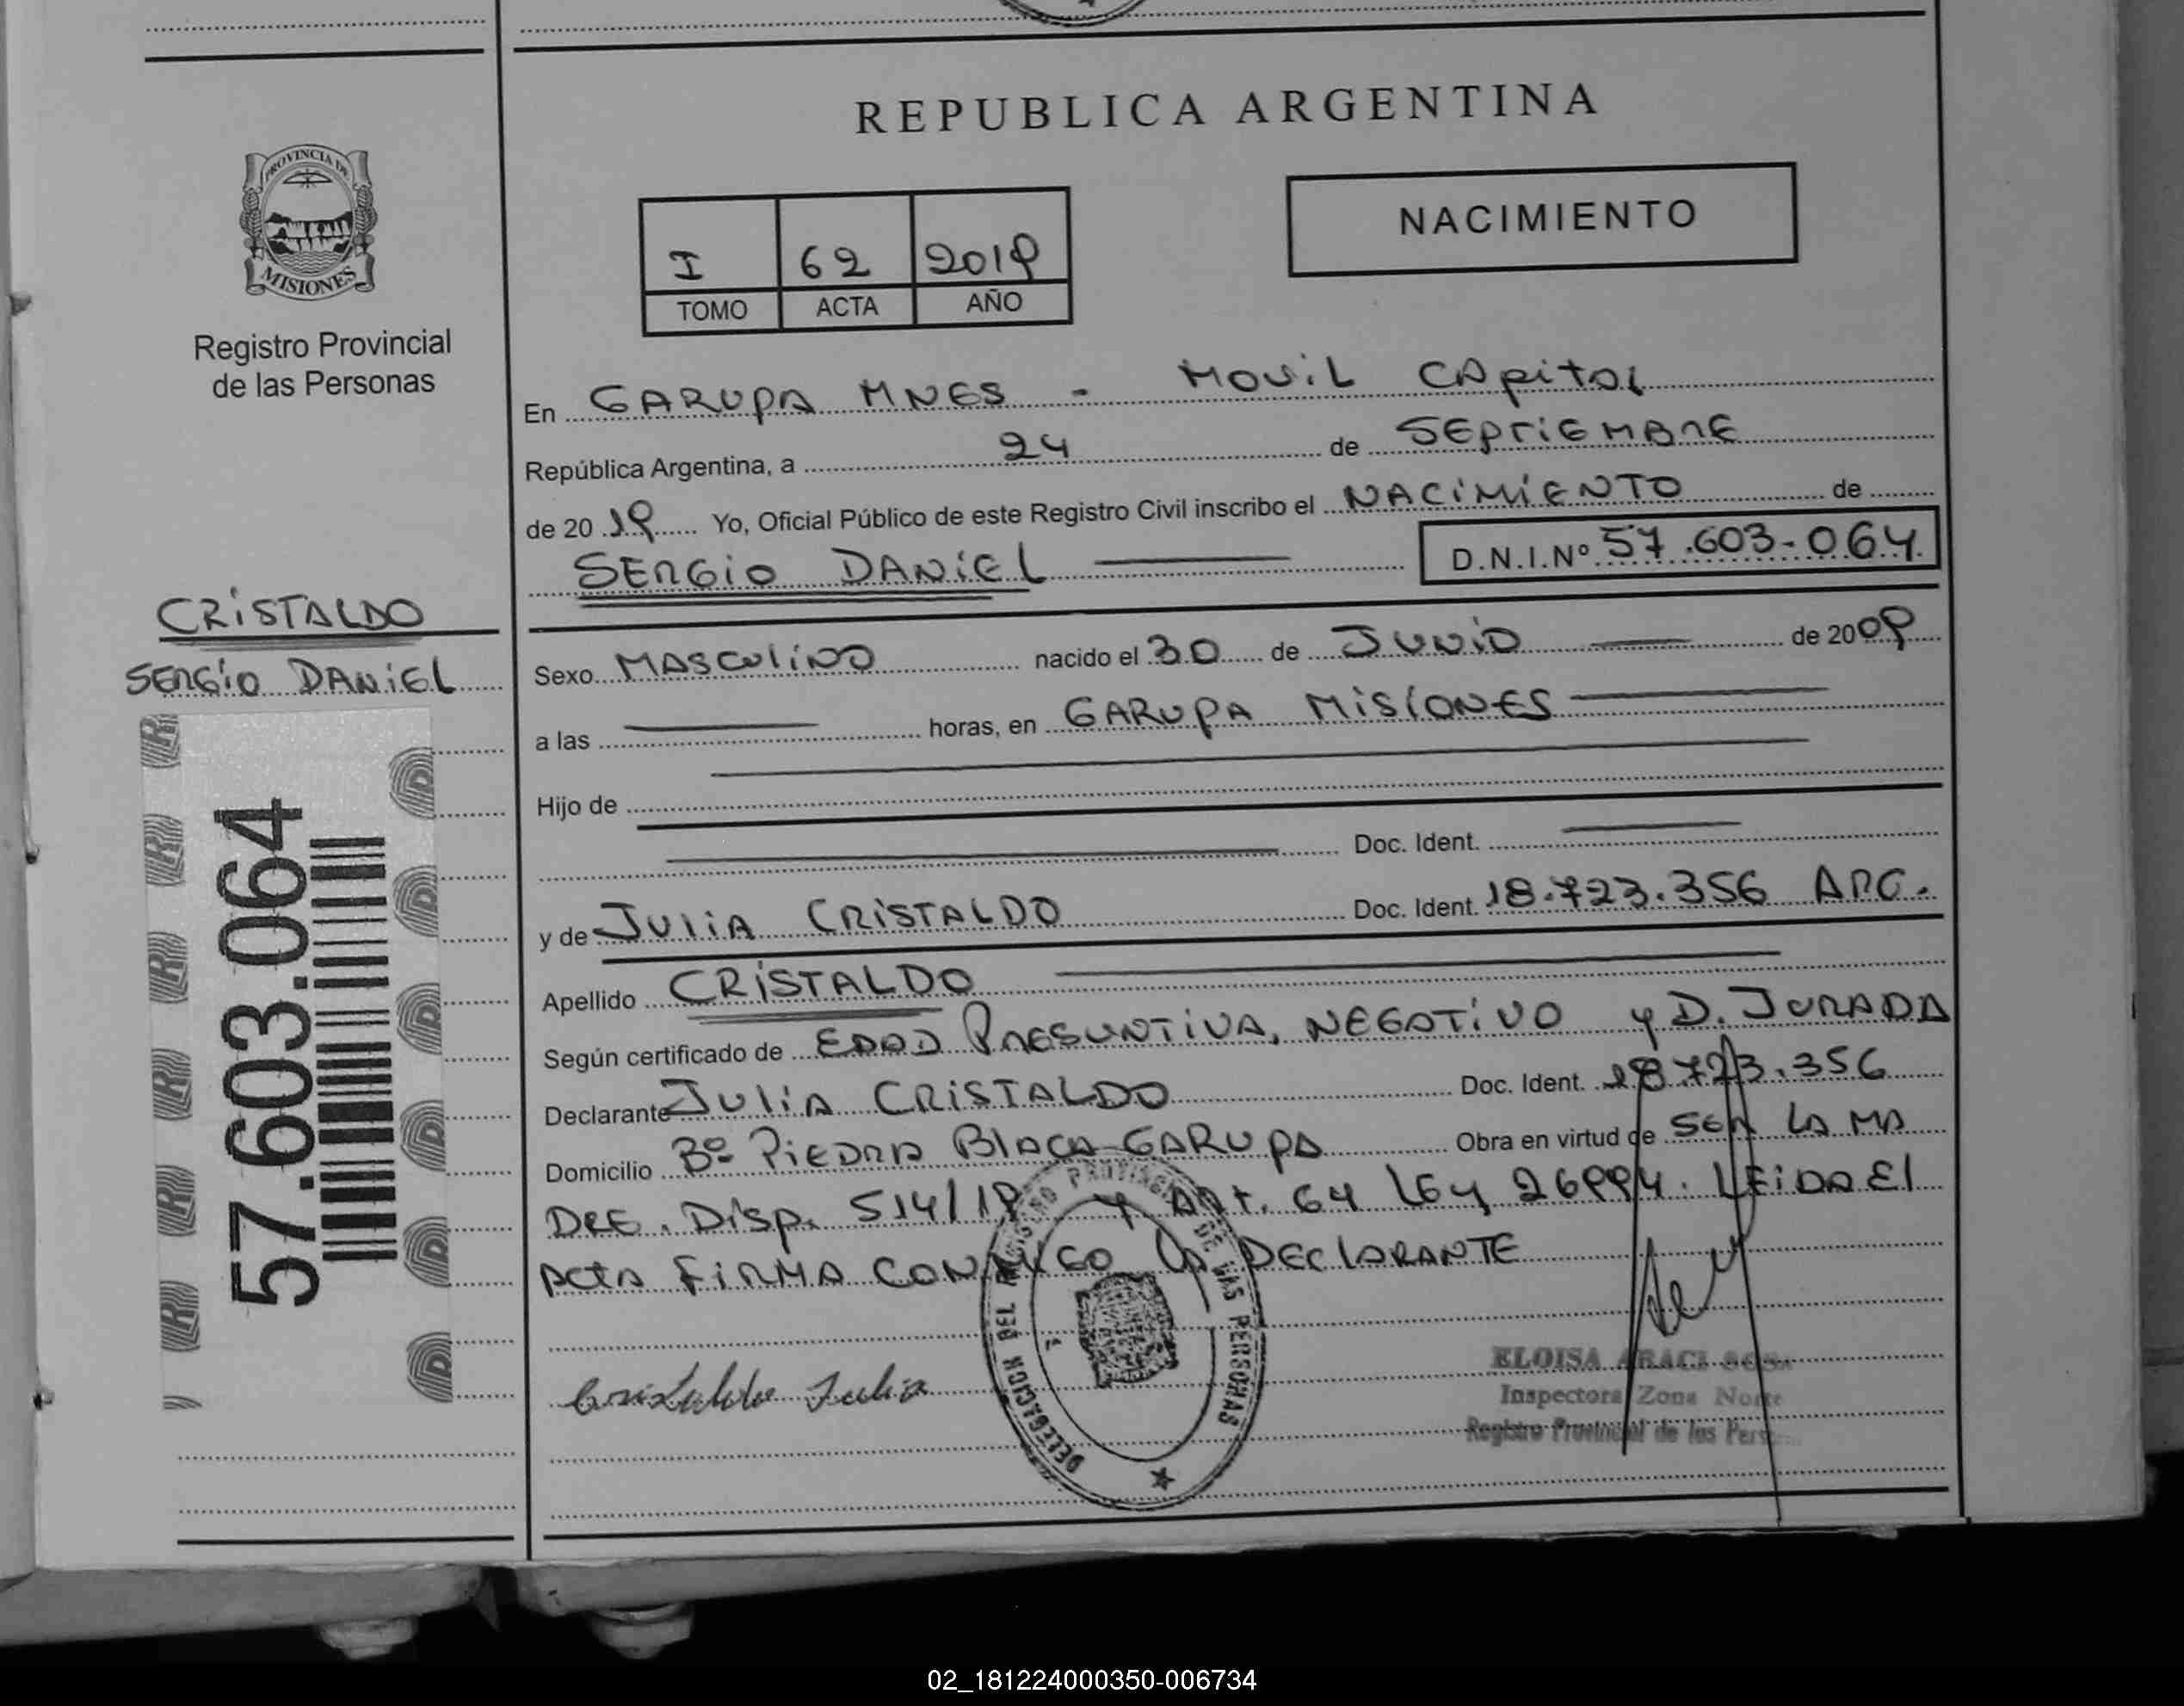 PROVINCIA DE
MISIONES
Registro Provincial
de las Personas
CRISTALDO
SERGIO DANIEL
57.603.064
REPUBLICA ARGENTINA
NACIMIENTO
I 62 2019
TOMO ACTA AÑO
En GARUPA MNES - MOVIL CAPITAL
República Argentina, a 24 de SEPTIEMBRE
de 20 19 Yo, Oficial Público de este Registro Civil inscribo el NACIMIENTO de
SERGIO DANIEL D.N.I.Nº 57.603.064
Sexo MASCULINO nacido el 30 de JUNIO de 2009
a las horas, en GARUPA MISIONES
Hijo de
Doc. Ident.
y de JULIA CRISTALDO Doc. Ident. 18.723.356 ARG.
Apellido CRISTALDO
Según certificado de EDAD PRESUNTIVA, NEGATIVO y D. JURADA
Declarante JULIA CRISTALDO Doc. Ident. 18723.356
Domicilio Bº PIEDRA BLACA GARUPA Obra en virtud de SER LA MA
DRE. DISP. 514/19 y ART. 64 LEY 26994. LEIDA El
ACTA FIRMA CONMIGO LA DEClARANTE
Cristaldo Julia
DELEGACION DEL REGISTRO PROVINCIAL DE LAS PERSONAS
ELOISA ARACI SOSA
Inspectora Zona Norte
Registro Provincial de las Pers
02_181224000350-006734